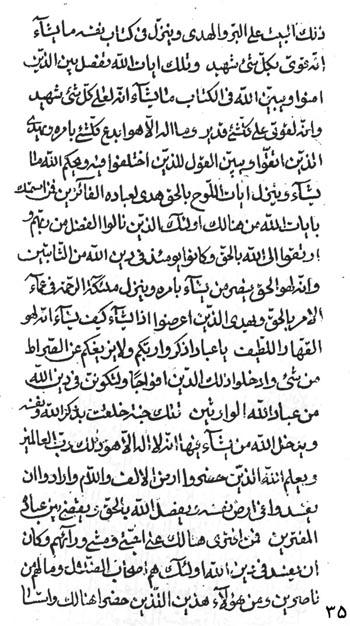 ذلك البيت على البر والهدى وينزل فى كتاب نفسه ما يشآء
انه قوى بكل شئ شهيد وتلك ايات الله نفصل بين الذين
امنوا ويبين الله فى الكتاب ما يشآء انه لعلى كل شئ شهيد
وانه لقوى على كل شئ قدير وما اله الا هو ابدع كل شئ بامره ويهدى
الذين اتقوا ويبين القول للذين اختلفوا فيه ويحكم الله ما
يشآء وينزل ايات اللوح بالحق هدى لعباده الفائزين فمن استمسك
بايات الله من هنالك اولئك الذين نالوا الفضل من ربهم و
ارتقوا الى الله بالحق وكانوا يومئذ فى دين الله من التائبين
وانه لهو الحق ينصر من يشآء بامره وينزل ملئكة الرحمة فى عمآء
الامر بالحق ويهدى الذين اعرضوا اذا شآء كيف يشآء انه لهو
القهار اللطيف يا عباد اذكروا ربكم ولا يمنعكم عن الصراط
من شئ وادخلوا ذلك الدين افواجا ولتكونن فى دين الله
من عباد الله الوارثين تلك جنة خلقت بذكر الله ونفسه
ويدخل الله من يشآء فيها انه لا اله الا هو ذلك رب العالمين
ويعلم الله الذين حضروا ارض الالف واللام وارادوا ان
يفسدوا فى ارض نفسه يفصل الله بالحق ويقضى بين عباد
المفترين فمن افترى هنالك على الله ورائهم وكان
ان يفسد فى دين الله اولئك هم اصحاب الضلال وما لهم من
ناصرين ومن هؤلاء هذين الذين حضرا هنالك
٣٥